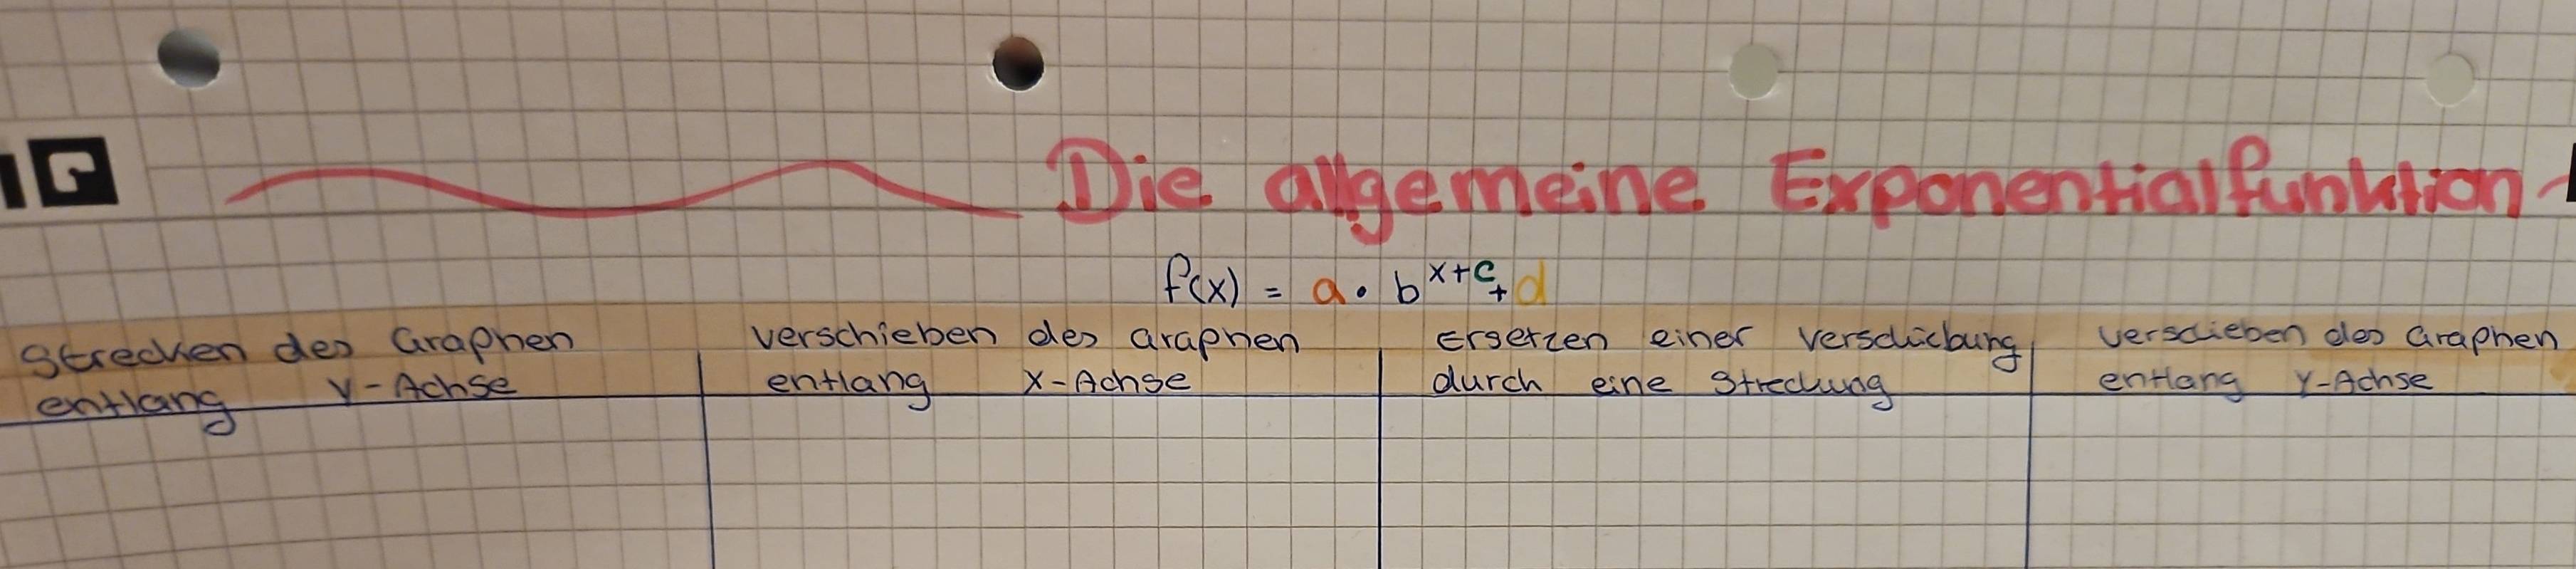 Die allgemeine Exponentialfunktion
f(x) = a · b^(x+c) + d
Strecken des Graphen
entlang y-Achse
verschieben des Graphen
entlang x-Achse
Ersetzen einer Verschiebung
durch eine Streckung
verschieben des Graphen
entlang y-Achse